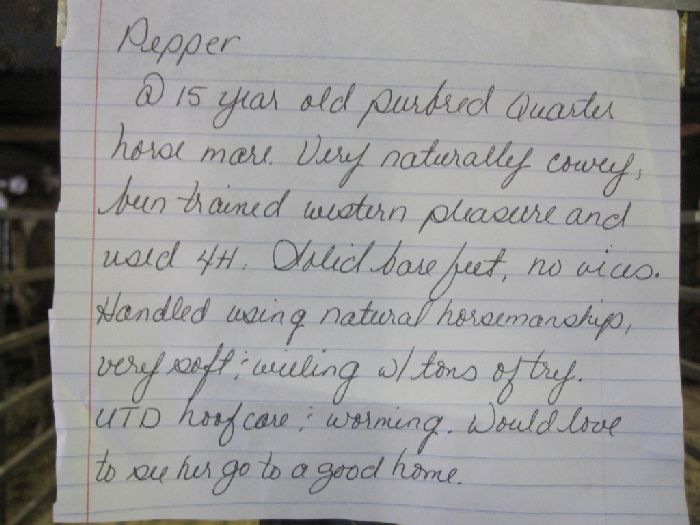 Pepper
@ 15 year old purbred Quarter
horse mare. Very naturally cowey,
been trained western pleasure and
used 4H. Solid bare feet, no vices.
Handled using natural horsemanship,
very soft & willing w/ tons of try.
UTD hoof care & worming. Would love
to see her go to a good home.